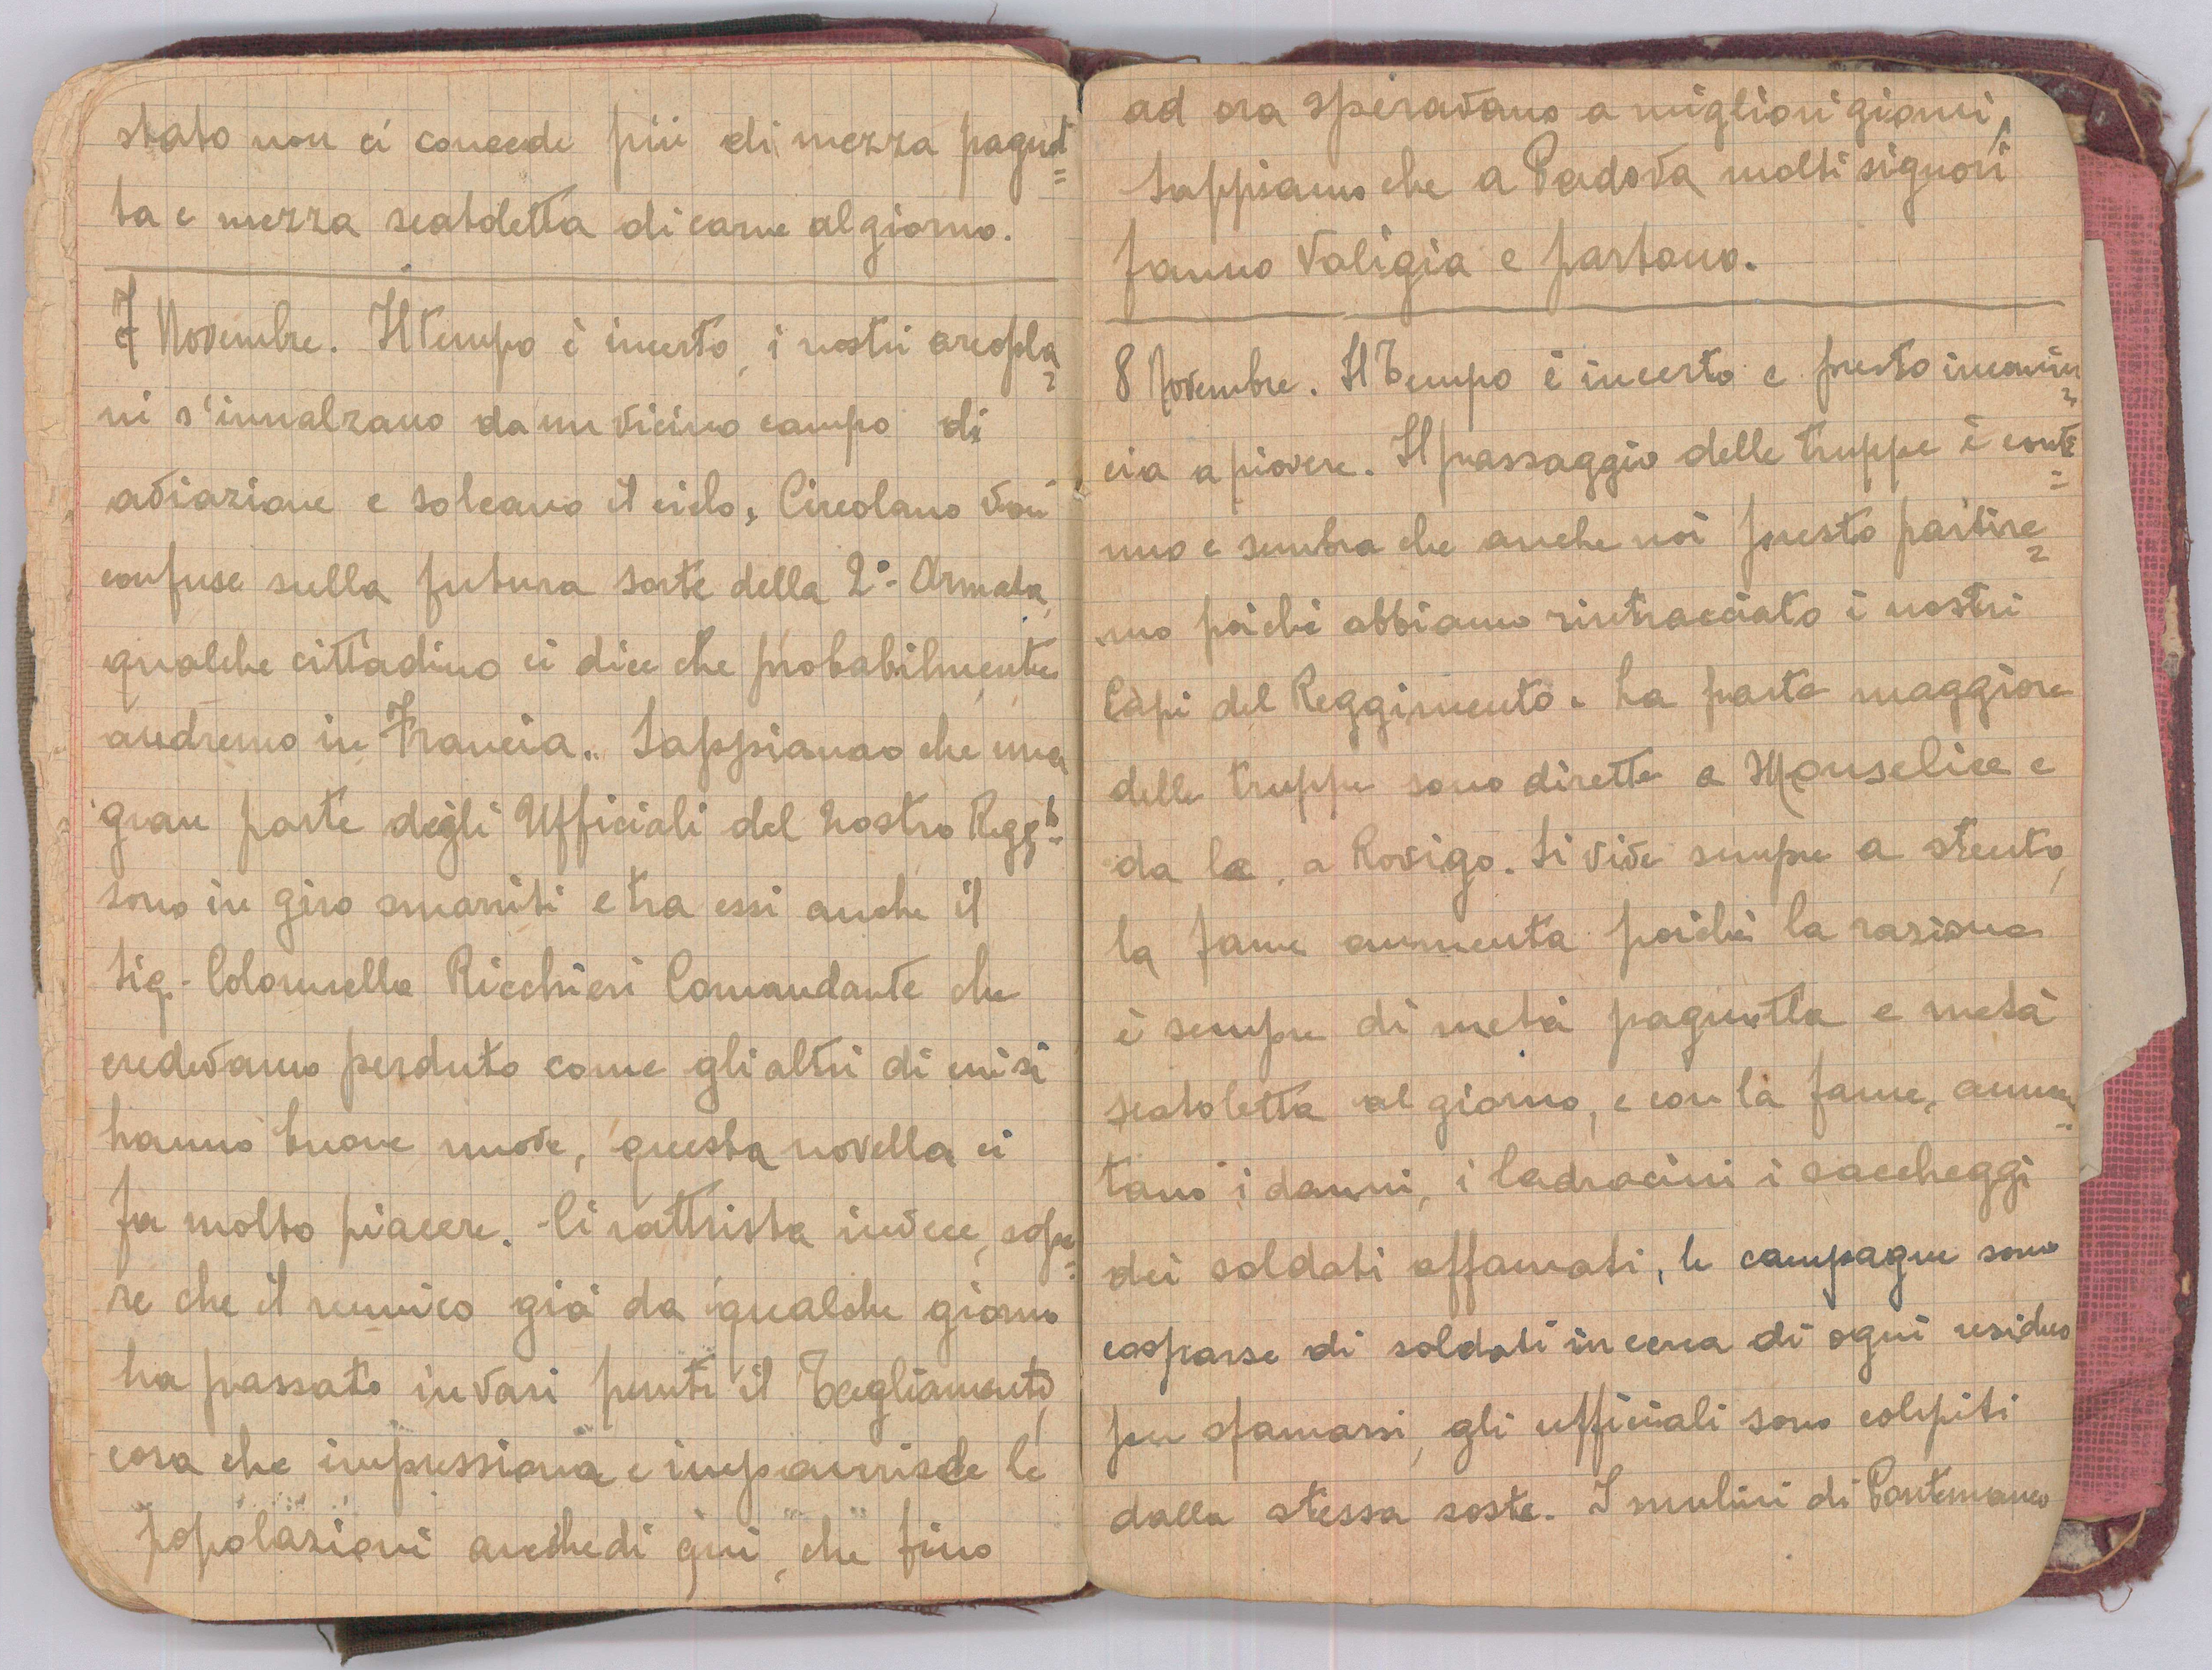 stato non ci concede più di mezza pagnot=
ta e mezza scatoletta di carne al giorno.
7 Novembre. Il tempo è incerto, i nostri areopla=
ni s'innalzano da un vicino campo di
aviazione e solcano il cielo. Circolano voci
confuse sulla futura sorte della 2ª Armata,
qualche cittadino ci dice che probabilmente
andremo in Francia. Sappiamo che una
gran parte degli Ufficiali del nostro Reggto
sono in giro smarriti e tra essi anche il
Sig. Colonnello Ricchieri Comandante che
credevamo perduto come gli altri di cui si
hanno buone nuove, questa novella ci
fa molto piacere. Ci rattrista invece, sape=
re che il nemico già da qualche giorno
ha passato in vari punti il Tagliamento,
cosa che impressiona e impaurisce le
popolazioni anche di qui, che fino
ad ora speravano a migliori giorni,
Sappiamo che a Padova molti signori
fanno valigia e partono.
8 Novembre. Il Tempo è incerto e presto incomin=
cia a piovere. Il passaggio delle truppe è conti=
nuo e sembra che anche noi presto partire=
mo poichè abbiamo rintracciato i nostri
Capi del Reggimento. La parte maggiore
delle truppe sono dirette a Monselice e
da la, a Rovigo. Si vive sempre a stento,
la fame aumenta poichè la razione
è sempre di metà pagnotta e metà
scatoletta al giorno, e con la fame, aumen=
tano i danni, i ladrocini i saccheggi
dei soldati affamati, le campagne sono
cosparse di soldati in cerca di ogni residuo
per sfamarsi, gli ufficiali sono colpiti
dalla stessa sorte. I mulini di Pontemanco